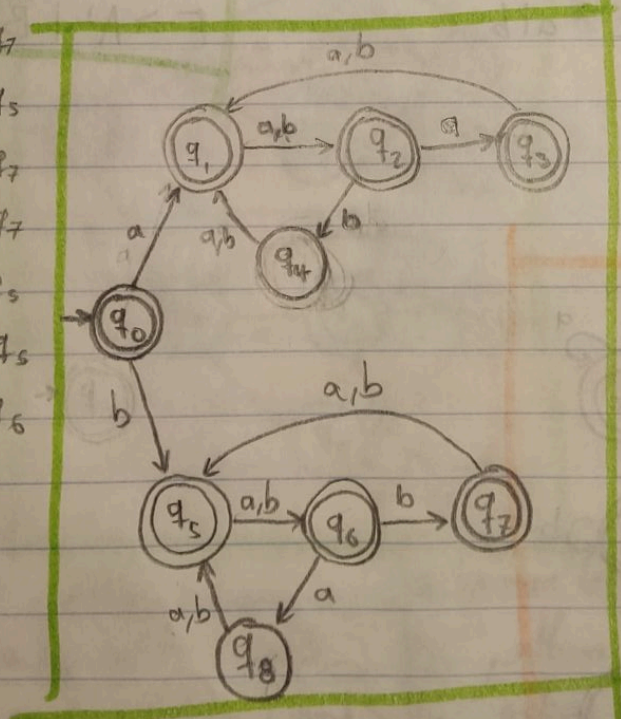 a,b
q1 a,b q2 a q3
a a,b q4 b
q0
b a,b
q5 a,b q6 b q7
a,b q8 a